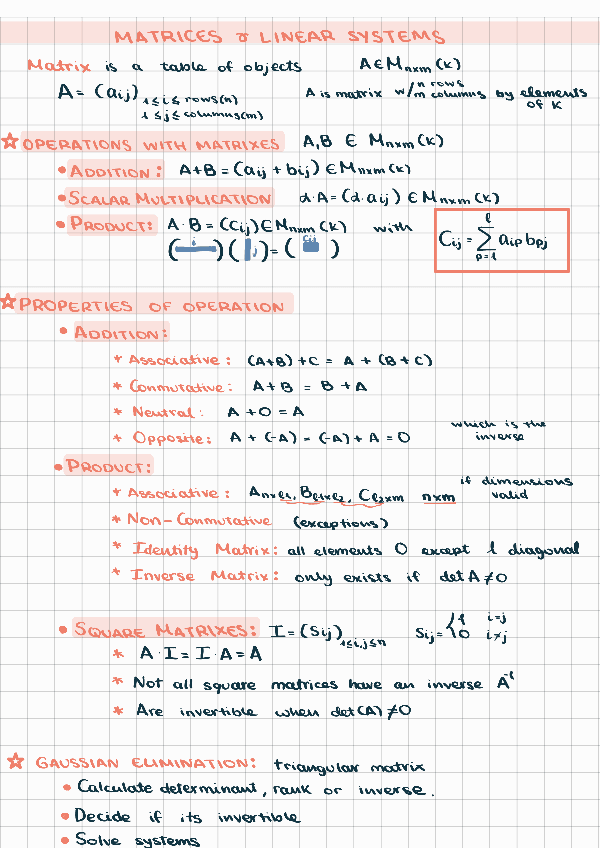 MATRICES & LINEAR SYSTEMS
Matrix is a table of objects A ∈ Mnxm (k)
A = (aij) 1 ≤ i ≤ rows(n) A is matrix w/ n rows m columns by elements of K
1 ≤ j ≤ columns(m)
☆ OPERATIONS WITH MATRIXES A,B ∈ Mnxm (k)
• ADDITION: A+B = (aij + bij) ∈ Mnxm (k)
• SCALAR MULTIPLICATION α·A = (α·aij) ∈ Mnxm (k)
• PRODUCT: A·B = (Cij) ∈ Mnxm (k) with Cij = Σ aip bpj
p=1
l
( i ) ( j ) = ( Cij )
☆ PROPERTIES OF OPERATION
• ADDITION:
* Associative: (A+B)+C = A + (B+C)
* Conmutative: A+B = B+A
* Neutral: A+0 = A
* Opposite: A + (-A) = (-A) + A = 0 which is the inverse
• PRODUCT:
* Associative: Anxl1, Bl1xl2, Cl2xm nxm if dimensions valid
* Non-Conmutative (exceptions)
* Identity Matrix: all elements 0 except 1 diagonal
* Inverse Matrix: only exists if det A ≠ 0
• SQUARE MATRIXES: I = (Sij) 1≤i,j≤n Sij = 1 i=j
0 i≠j
* A·I = I·A = A
* Not all square matrices have an inverse A⁻¹
* Are invertible when det(A) ≠ 0
☆ GAUSSIAN ELIMINATION: triangular matrix
• Calculate determinant, rank or inverse.
• Decide if its invertible
• Solve systems